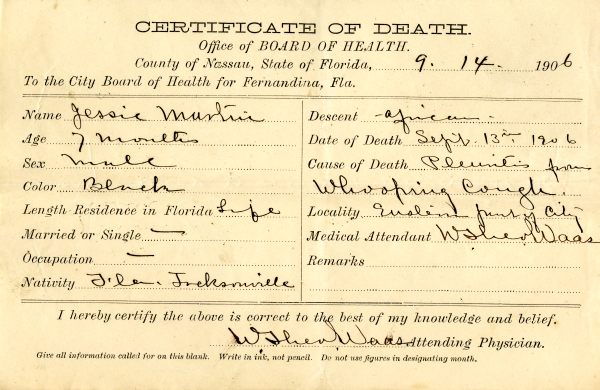 CERTIFICATE OF DEATH.
Office of BOARD OF HEALTH.
County of Nassau, State of Florida, 9. 14. 1906
To the City Board of Health for Fernandina, Fla.
Name Jessie Martin
Age 7 months
Sex Male
Color Black
Length Residence in Florida Life
Married or Single —
Occupation —
Nativity Fla. Jacksonville
Descent African.
Date of Death Sept. 13th 1906
Cause of Death Pleuritis from
Whooping Cough.
Locality Eastern part of City
Medical Attendant W Theo Waas
Remarks
I hereby certify the above is correct to the best of my knowledge and belief.
W Theo Waas Attending Physician.
Give all information called for on this blank. Write in ink, not pencil. Do not use figures in designating month.